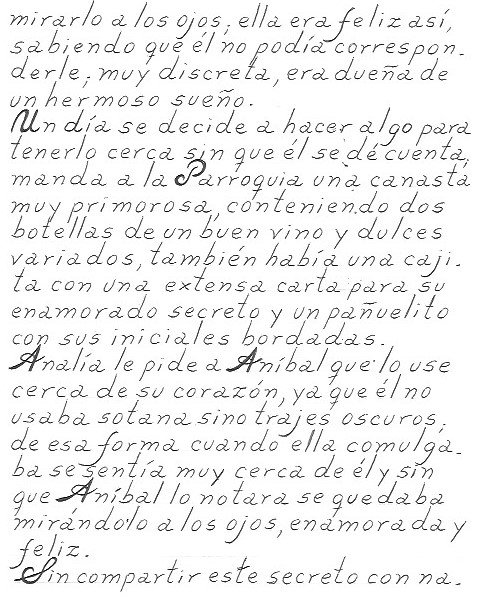 mirarlo a los ojos; ella era feliz así,
sabiendo que él no podía correspon-
derle; muy discreta, era dueña de
un hermoso sueño.
Un día se decide a hacer algo para
tenerlo cerca sin que él se dé cuenta,
manda a la Parroquia una canasta
muy primorosa, conteniendo dos
botellas de un buen vino y dulces
variados, también había una caji-
ta con una extensa carta para su
enamorado secreto y un pañuelito
con sus iniciales bordadas.
Analía le pide a Aníbal que lo use
cerca de su corazón, ya que él no
usaba sotana sino trajes oscuros;
de esa forma cuando ella comulga-
ba se sentía muy cerca de él y sin
que Aníbal lo notara se quedaba
mirándolo a los ojos, enamorada y
feliz.
Sin compartir este secreto con na-